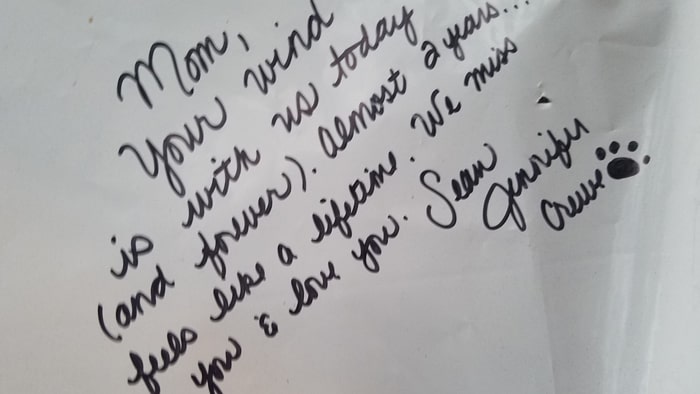 Mom,
Your wind
is with us today
(and forever). Almost 2 years...
feels like a lifetime. We miss
you & love you. Sean
Jennifer